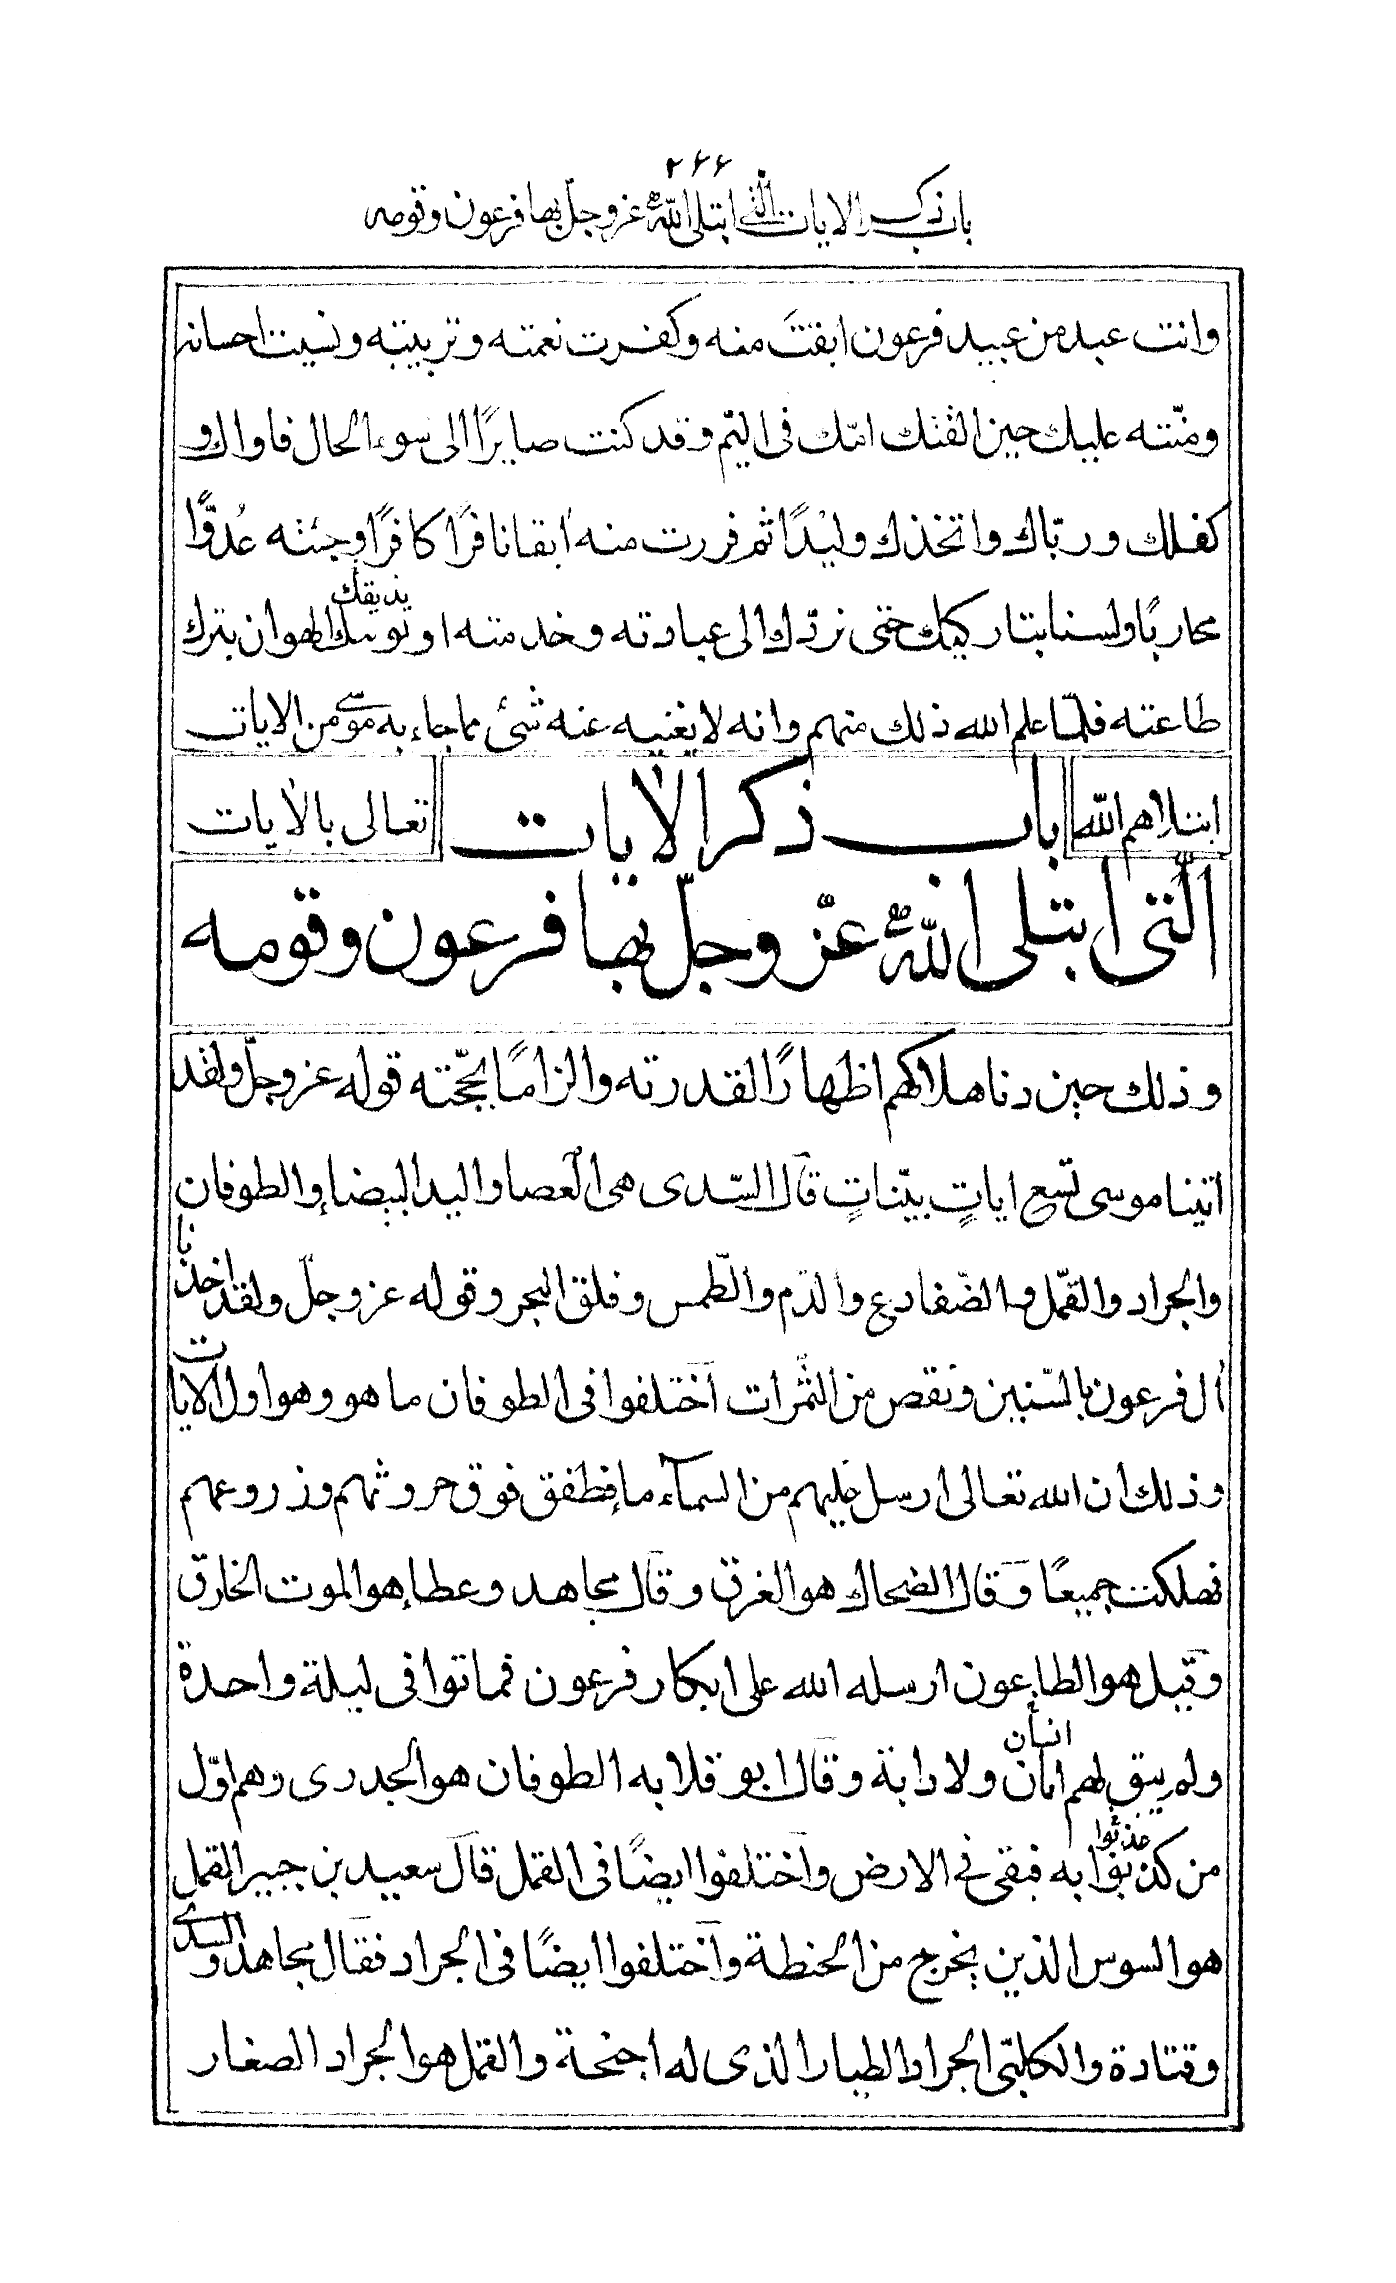 ٢٦٦
باب ذكر الايات التى ابتلى الله عز وجل بها فرعون وقومه
وانت عبد من عبيد فرعون ابقتَ منه وكفرت نعمته وتربيته ونسيت احسانه
ومنّته عليك حين القتك امّك فى اليمّ وقد كنت صايرًا الى سوء الحال فاواك و
كفلك وربّاك واتخذك وليدًا ثم فررت منه ابقا نافرًا كافرًا وجئته عُدوًّا
محاربًا ولسنا بتاركيك حتى نردّك الى عبادته وخدمته او نوسك الهوان بترك
يذيقك
طاعته فلمّا علم الله ذلك منهم وانه لا يغنيه عنه شئ مما جاء به موسى من الايات
ابتلاهم الله تعالى بالايات
باب ذكر الايات
الّتى ابتلى الله عزّ وجلّ بها فرعون وقومه
وذلك حين دنا هلاكهم اظهارًا لقدرته والزامًا بحجّته قوله عز وجلّ ولقد
اتينا موسى تسع اياتٍ بيّناتٍ قال السّدى هى العصا واليد البيضاء والطوفان
والجراد والقمّل والضّفادع والدّم والطّمس وفلق البحر وقوله عز وجلّ ولقد اخذنا
ال فرعون بالسّنين ونقص من الثّمرات اختلفوا فى الطوفان ما هو وهو اول الايات
وذلك ان الله تعالى ارسل عليهم من السمآء ماء فطفق فوق حروثهم وزروعهم
فهلكت جميعًا وقال الضحاك هو الغرق وقال مجاهد وعطاء هو الموت الخارق
وقيل هو الطاعون ارسله الله على ابكار فرعون فماتوا فى ليلة واحدة
ولم يبق لهم امان ولا دابة وقال ابو قلابه الطوفان هو الجدرى وهم اوّل
انسان
من كذبوا به فبقى فى الارض واختلفوا ايضًا فى القمل قال سعيد بن جبير القمل
عذبوا
هو السوس الذين يخرج من الحنطة واختلفوا ايضًا فى الجراد فقال مجاهد والسدى
وقتادة والكلبّى الجراد الطيار الذى له اجنحة والقمل هو الجراد الصغار